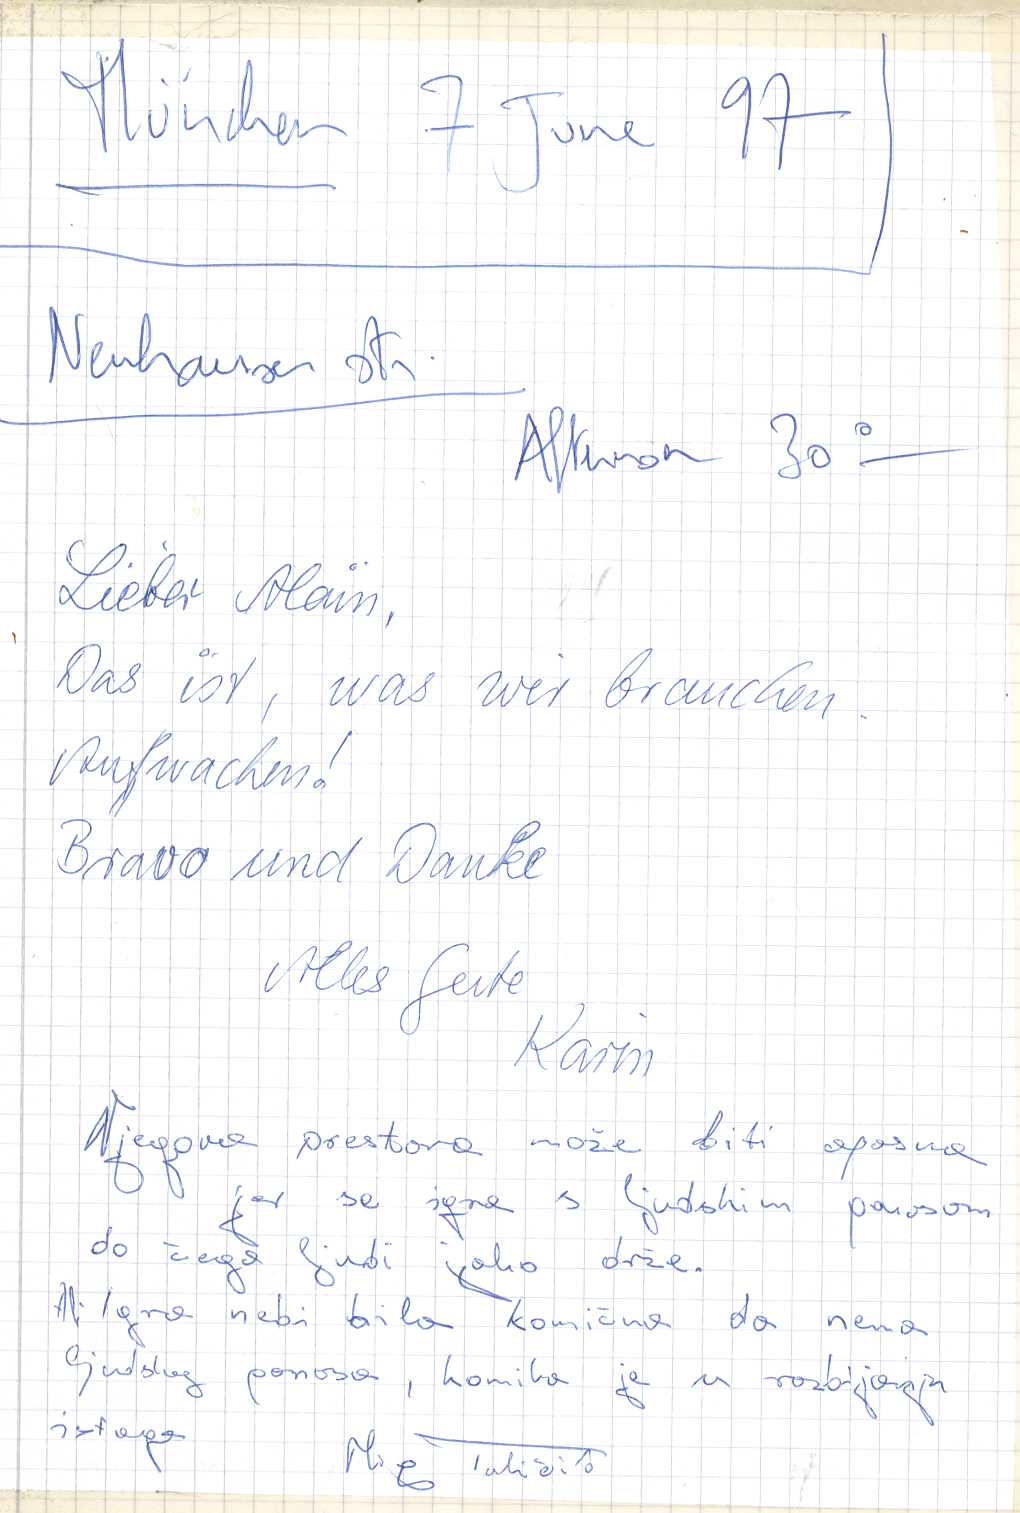 München 7 June 97
Neuhauser Str.
Afternoon 30°
Lieber Alain,
Das ist, was wir brauchen.
Aufwachen!
Bravo und Danke
Alles Gute
Karin
Njegova prestava može biti opasna
jer se igra s ljudskim ponosom
do čega ljudi jako drže.
Ali Igra nebi bila komična da nema
ljudskog ponosa, komika je u razbijanju
istoga